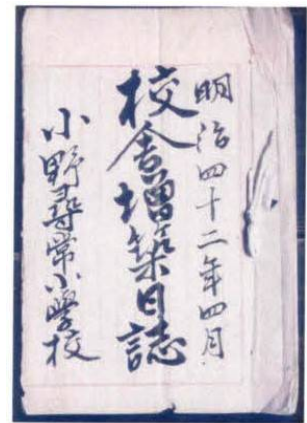 明治四十二年四月
校舎増築日誌
小野尋常小学校